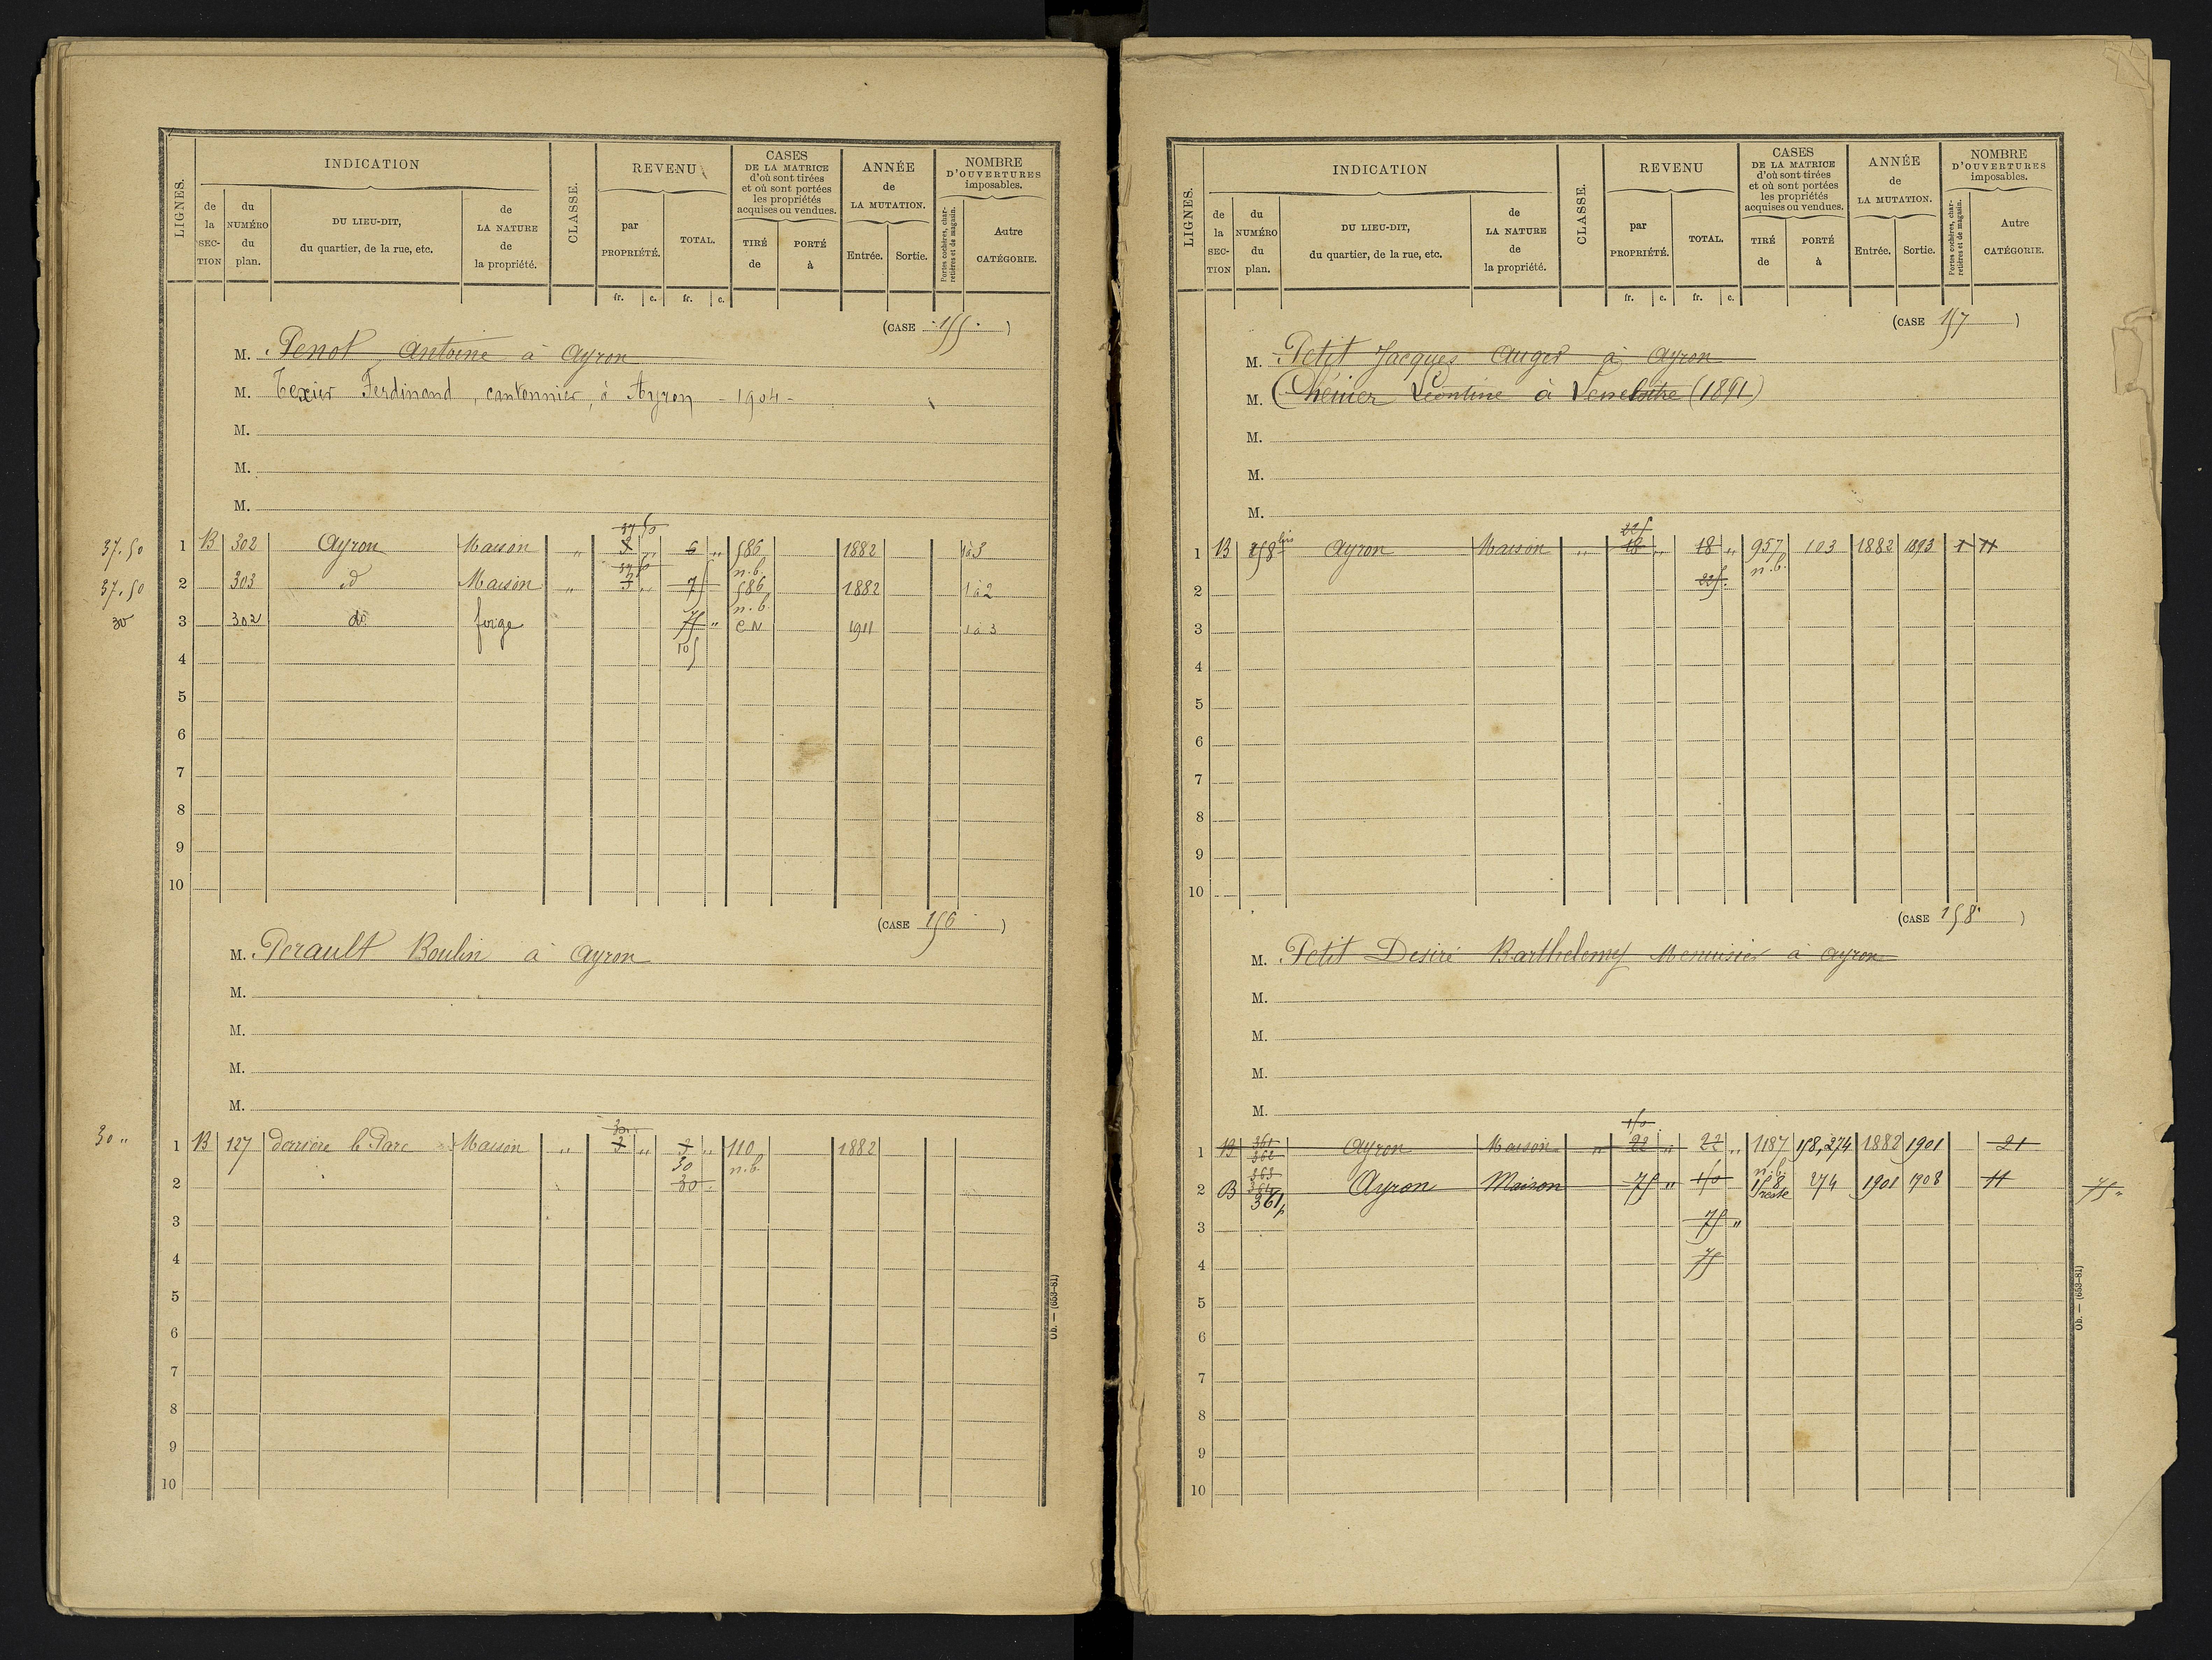 LIGNES. INDICATION CLASSE. REVENU CASES DE LA MATRICE d'où sont tirées et où sont portées les propriétés acquises ou vendues. ANNÉE de LA MUTATION. NOMBRE D'OUVERTURES imposables.
de la SECTION du NUMÉRO du plan. DU LIEU-DIT, du quartier, de la rue, etc. de LA NATURE de la propriété. par PROPRIÉTÉ. TOTAL. TIRÉ de PORTÉ à Entrée. Sortie. Portes cochères, charretières et de magasin. Autre CATÉGORIE.
fr. c. fr. c.
(CASE 155.)
M. Penot Antoine à Ayron
M. Texier Ferdinand, cantonnier, à Ayron - 1904 -
M.
M.
M.
37 50
37.50 1 B 302 Ayron Maison " 3 " 6 " 586 n.b. 1882 1à3
37 50
37.50 2 303 d Maison " 3 " 75 586 n.b. 1882 1à2
30 3 302 do forge 75 " C N 1911 1à3
4 105
5
6
7
8
9
10
(CASE 156)
M. Perault Boulin à Ayron
M.
M.
M.
M.
30.
30 " 1 B 127 derrière le Parc Maison " 3 " 3 " 110 1882
30 n.b.
2 30
3
4
5
6
7
8
9
10
Ob. — (653-81)
LIGNES. INDICATION CLASSE. REVENU CASES DE LA MATRICE d'où sont tirées et où sont portées les propriétés acquises ou vendues. ANNÉE de LA MUTATION. NOMBRE D'OUVERTURES imposables.
de la SECTION du NUMÉRO du plan. DU LIEU-DIT, du quartier, de la rue, etc. de LA NATURE de la propriété. par PROPRIÉTÉ. TOTAL. TIRÉ de PORTÉ à Entrée. Sortie. Portes cochères, charretières et de magasin. Autre CATÉGORIE.
fr. c. fr. c.
(CASE 157)
M. Petit Jacques Auger à Ayron
M. Léontine à (1891)
M.
M.
M.
225
1 B 258 bis Ayron Maison " 18 " 18 " 957 103 1882 1893 1 11
n.b.
2 225
3
4
5
6
7
8
9
10
(CASE 158)
M. Petit Desiré Barthelemy Menuisier à Ayron
M.
M.
M.
M.
150
1 B 361 362 Ayron Maison " 22 " 22 " 1187 158,274 1882 1901 21
363 364 n.b.
2 B 361p Ayron Maison 75 " 150 158 reste 274 1901 1908 11 75 "
3 75 "
4 75
5
6
7
8
9
10
Ob. — (653-81)